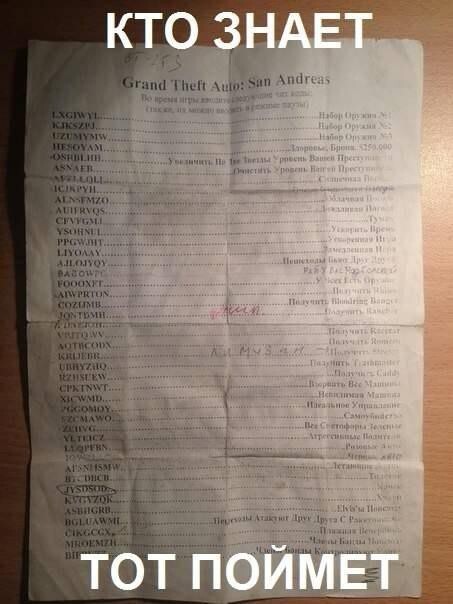 КТО ЗНАЕТ
Grand Theft Auto: San Andreas
Во время игры вводите следующие чит коды:
(также, их можно вводить в режиме паузы)
LXGIWYL Набор Оружия №1
KJKSZPJ Набор Оружия №2
UZUMYMW Набор Оружия №3
HESOYAM Здоровье, Броня, $250.000
OSRBLHH Увеличить На Две Звезды Уровень Вашей
ASNAEB Очистить Уровень Вашей
Солнечная
ICIKPYH
ALNSFMZO Облачная
AUIFRVQS Дождливая Погода
CFVFGMJ Туман
YSOHNUL Ускорить Время
PPGWJHT Ускоренная Игра
LIYOAAY Замедленная Игра
AJLOJYQY Пешеходы Бьют Друг Друга
BAGOWPG
FOOOXFT У Всех Есть Оружие
AIWPRTON Получить Rhino
CQZIJMB Получить Bloodring Banger
JQNTDMH Получить Rancher
VPJTQWV Получить Racecar
AQTBCODX Получить Romero
KRIJEBR Получить
UBHYZHQ Получить Trashmaster
RZHSUEW Получить Caddy
CPKTNWT Взорвать Все Машины
XICWMD Невидимая Машина
PGGOMOY Идеальное Управление
SZCMAWO Самоубийство
ZEIIVG Все Светофоры Зеленые
YLTEICZ Агрессивные Водители
LLQPFBN Розовые Авто
AFSNMSMW Летающие
BTCDBCB
JYSDSOD
KVGYZQK
ASBHGRB Elvis'ы Повсюду
BGLUAWML Пешеходы Атакуют Друг Друга С
CIKGCGX Пляжная Вечеринка
MROEMZH Члены Банды Повсюду
Члены Банды
ТОТ ПОЙМЕТ